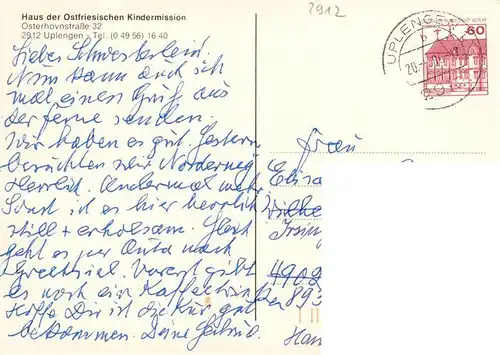 2912
Haus der Ostfriesischen Kindermission
Osterhovnstraße 32
2912 Uplengen - Tel. (0 49 56) 16 40
UPLENGEN
60
20.
Liebes Schwesterlein.
Nun kann auch ich
mal einen Gruß aus
der ferne senden.
Wir haben es gut. Gestern
besuchten wir Norderney
Herrlich. Andermal mehr
Sonst ist es hier herrlich
still + erholsam. Heut
geht es per Auto nach
Greetsiel. Vorerst gibt
es noch ein Kaffeetrinken
Hoffe Dir ist die Kur gut
bekommen. Deine
Frau
Elisa
Wilhe
4902
893
Han